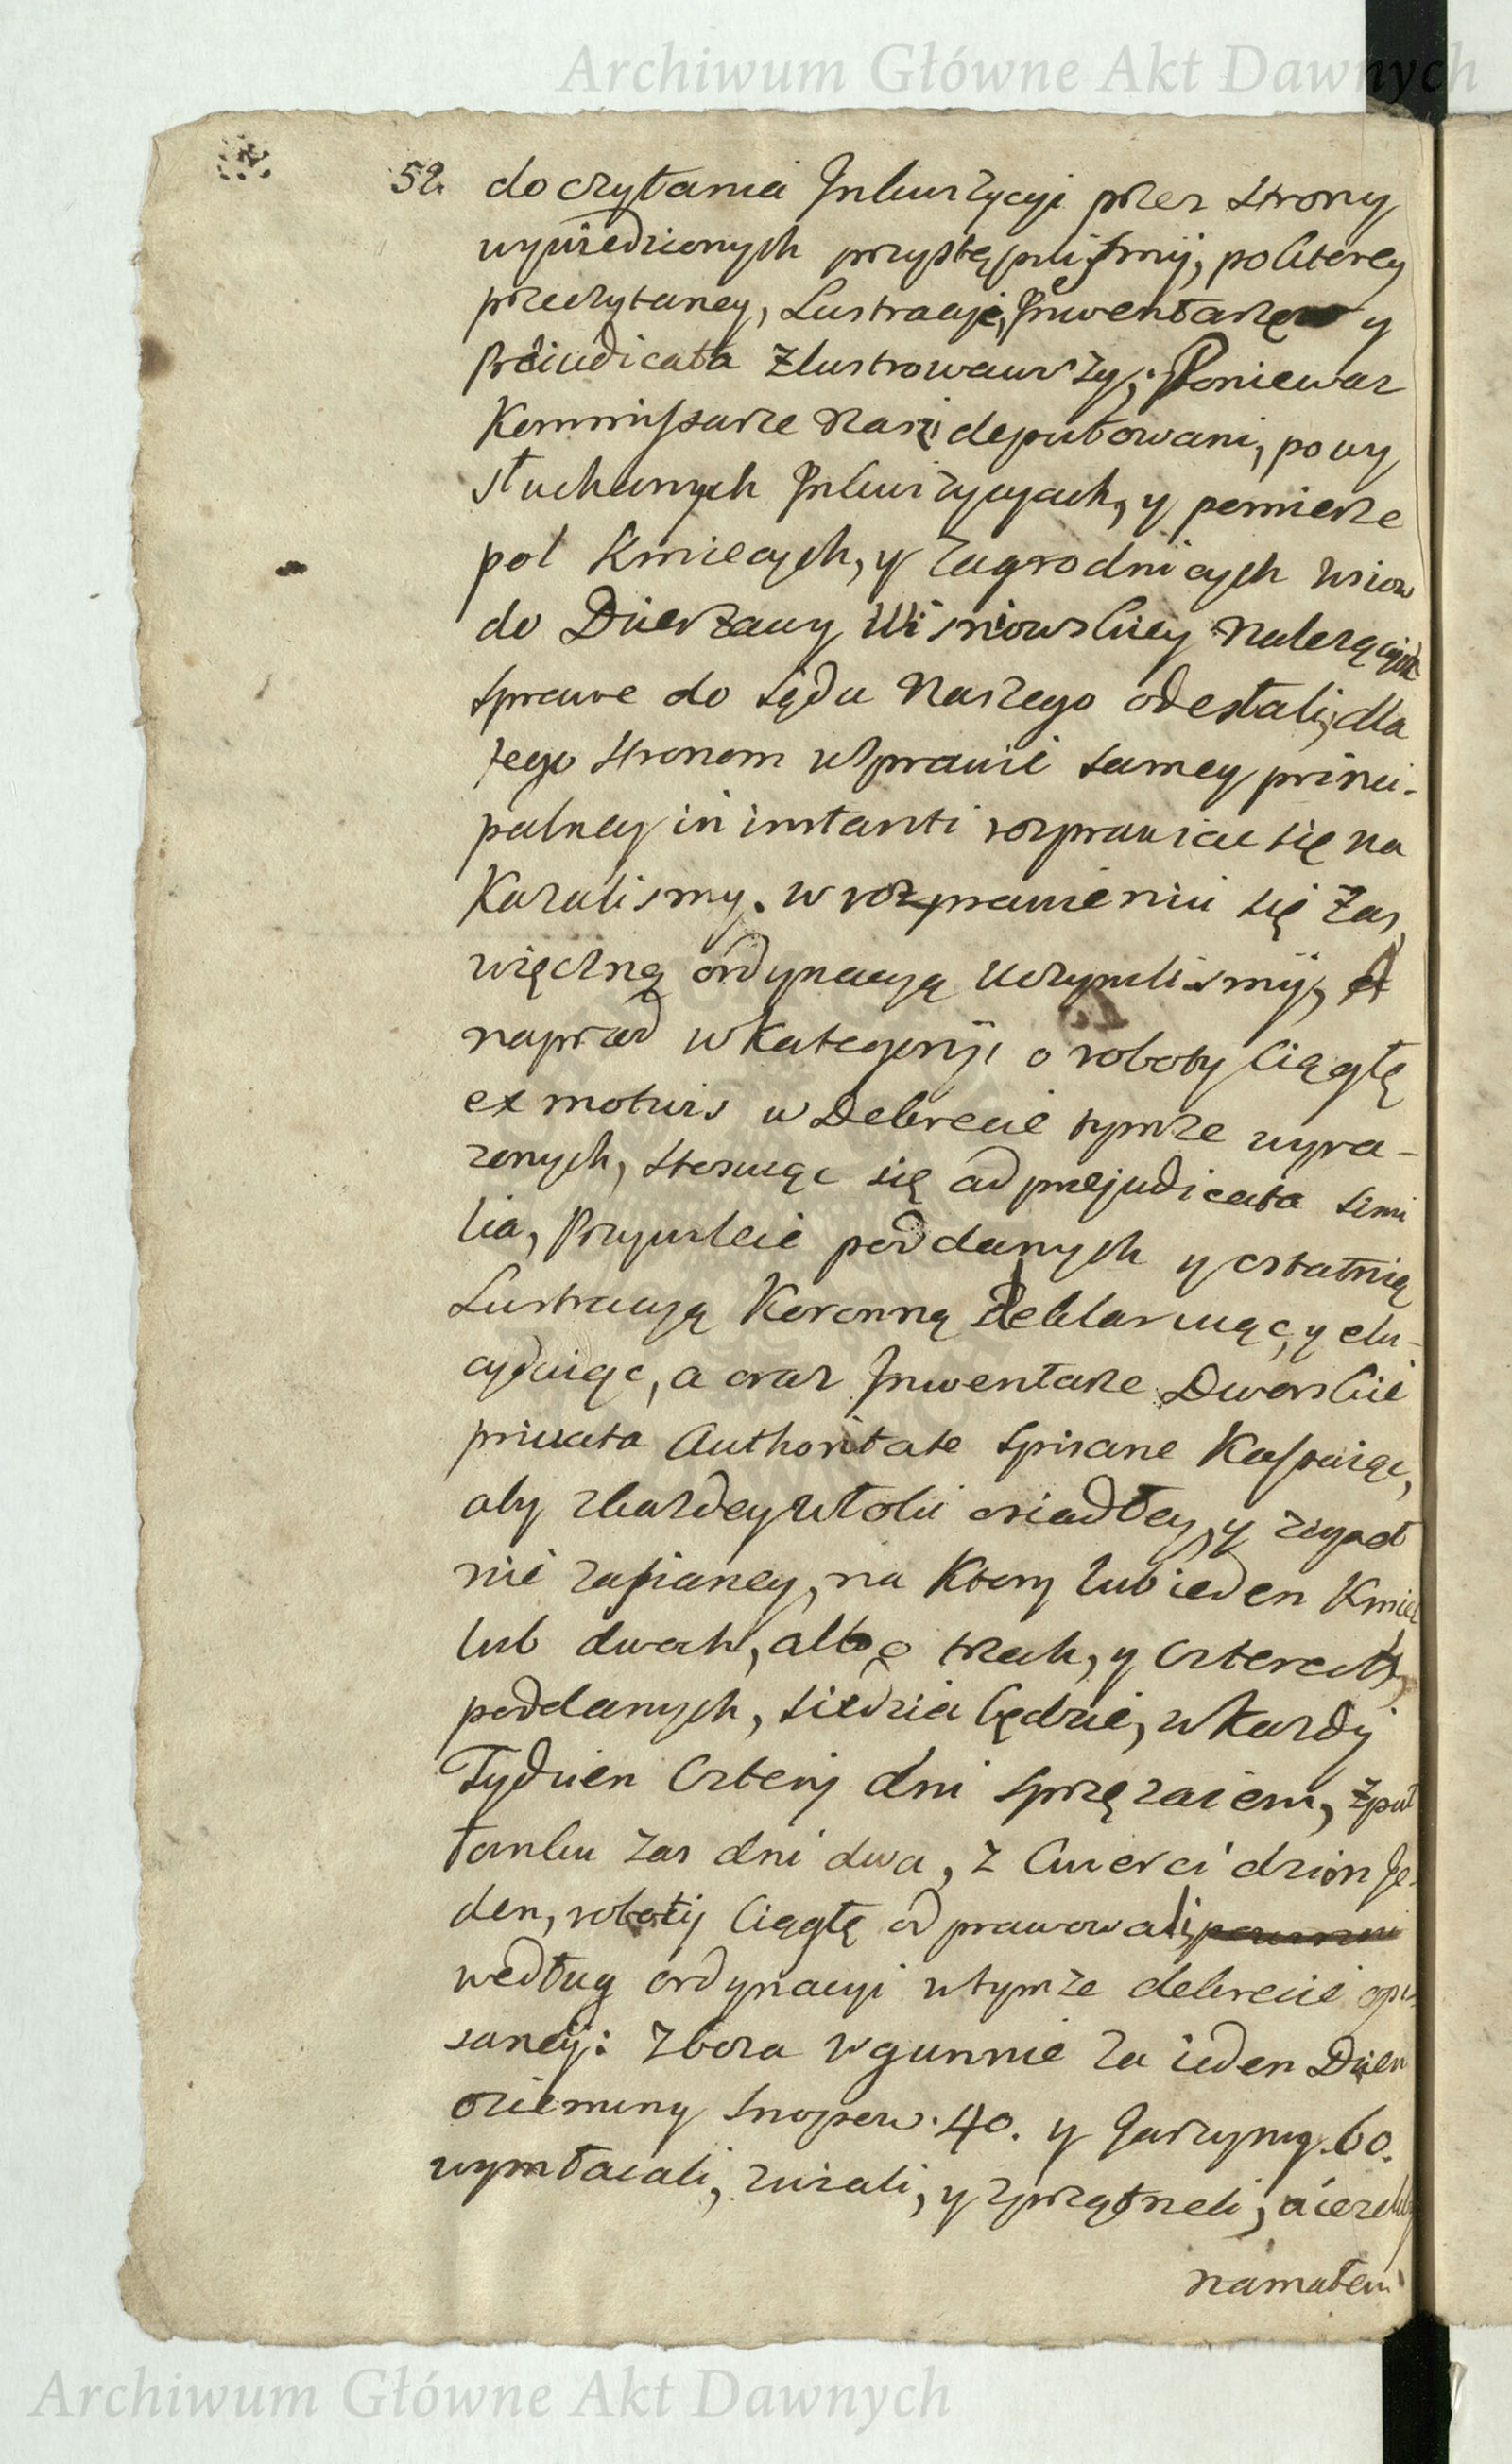 Archiwum Główne Akt Dawnych
52. do czytania Inkwizycyi przez strony
wywiedzionych przystąpilismy, po ktorey
przeczytaney, Lustracye, Inwentarze y
Preiudicata zlustrowawszy; Poniewaz
Kommissarze Nasi deputowani, po wy
słuchanych Inkwizycyach, y pomierze
pol Kmiecych, y Zagrodniczych wsiow
do Dzierzawy Wisniowskiey Nalezących
sprawe do sądu Naszego odesłali, dla
tego stronom w sprawie samey princi-
palney in instanti rozprawiac się na
Kazalismy. w rozprawieniu się zas
więczną ordynacyą uczynilismy, A
naprzod w kategoryi o roboty ciągłę
ex motivis w Dekrecie tymze wyra-
zonych, stosuiąc się ad prejudicata simi
lia, Przywileie poddanych y ostatnią
Lustracyą Koronną deklaruiąc, y elu-
cyduiąc, a oraz Inwentarze Dworskie
privata Authoritate spisane Kassuiąc,
aby z kazdey Roli osiadłey, y zupeł
nie zasianey, na Ktory lub ieden Kmiec
lub dwoch, albo trzech, y czterech
poddanych, siedzia będzie, w Kazdy
Tydzien Cztery dni sprzęzaiem, z puł
łanku zas dni dwa, z Cwierci dzion Je-
den, roboty ciągłę odprawowali
według ordynacyi w tymze dekrecie opi-
saney: Zboza w gumnie za ieden Dzien
ozieminy snopow. 40. y Jarzyny. 60.
wymłacali, zwiali, y zprzątneli,
namałem
Archiwum Główne Akt Dawnych